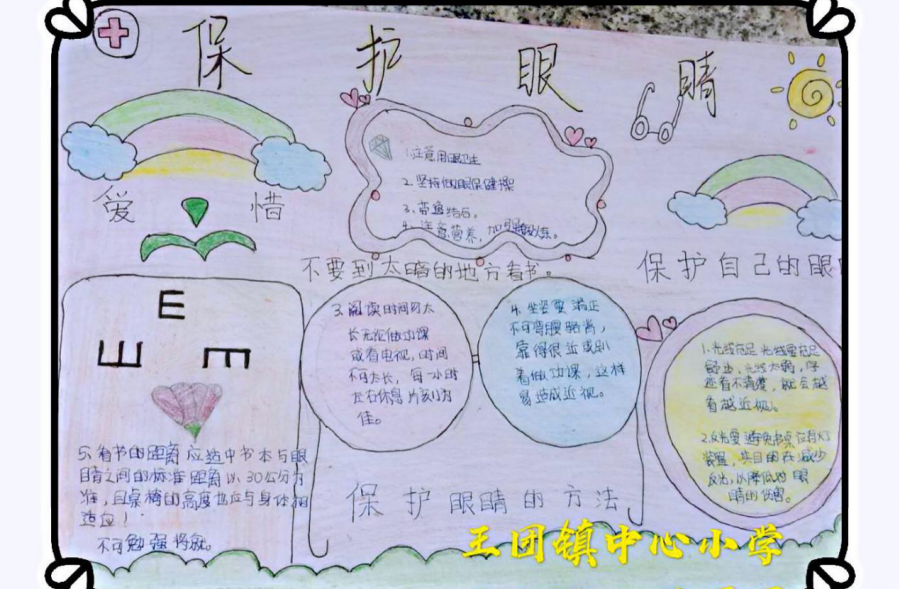 保护眼睛
爱惜
1.注意用眼卫生
2.坚持做眼保健操
3.普通结合。
4.注意营养，加强锻炼。
不要到太暗的地方看书。
保护自己的眼
E
3.阅读时间勿太
长无论做功课
或看电视，时间
不可太长，每一小时
左右休息片刻为
佳。
4.坐姿要端正
不可弯腰
靠得很近或趴
着做功课，这样
易造成近视。
1.光线充足光线要充足
舒适，光线太弱，字
迹看不清楚，就会越
看越近视。
2.反光要避免书桌应有灯
装置，其目的在减少
反光，以降低对眼
睛的伤害。
5.看书的距离应适中书本与眼
睛之间的标准距离以30公分为
准，且桌椅的高度也应与身体相
适应！
不可勉强将就。
保护眼睛的方法
王团镇中心小学